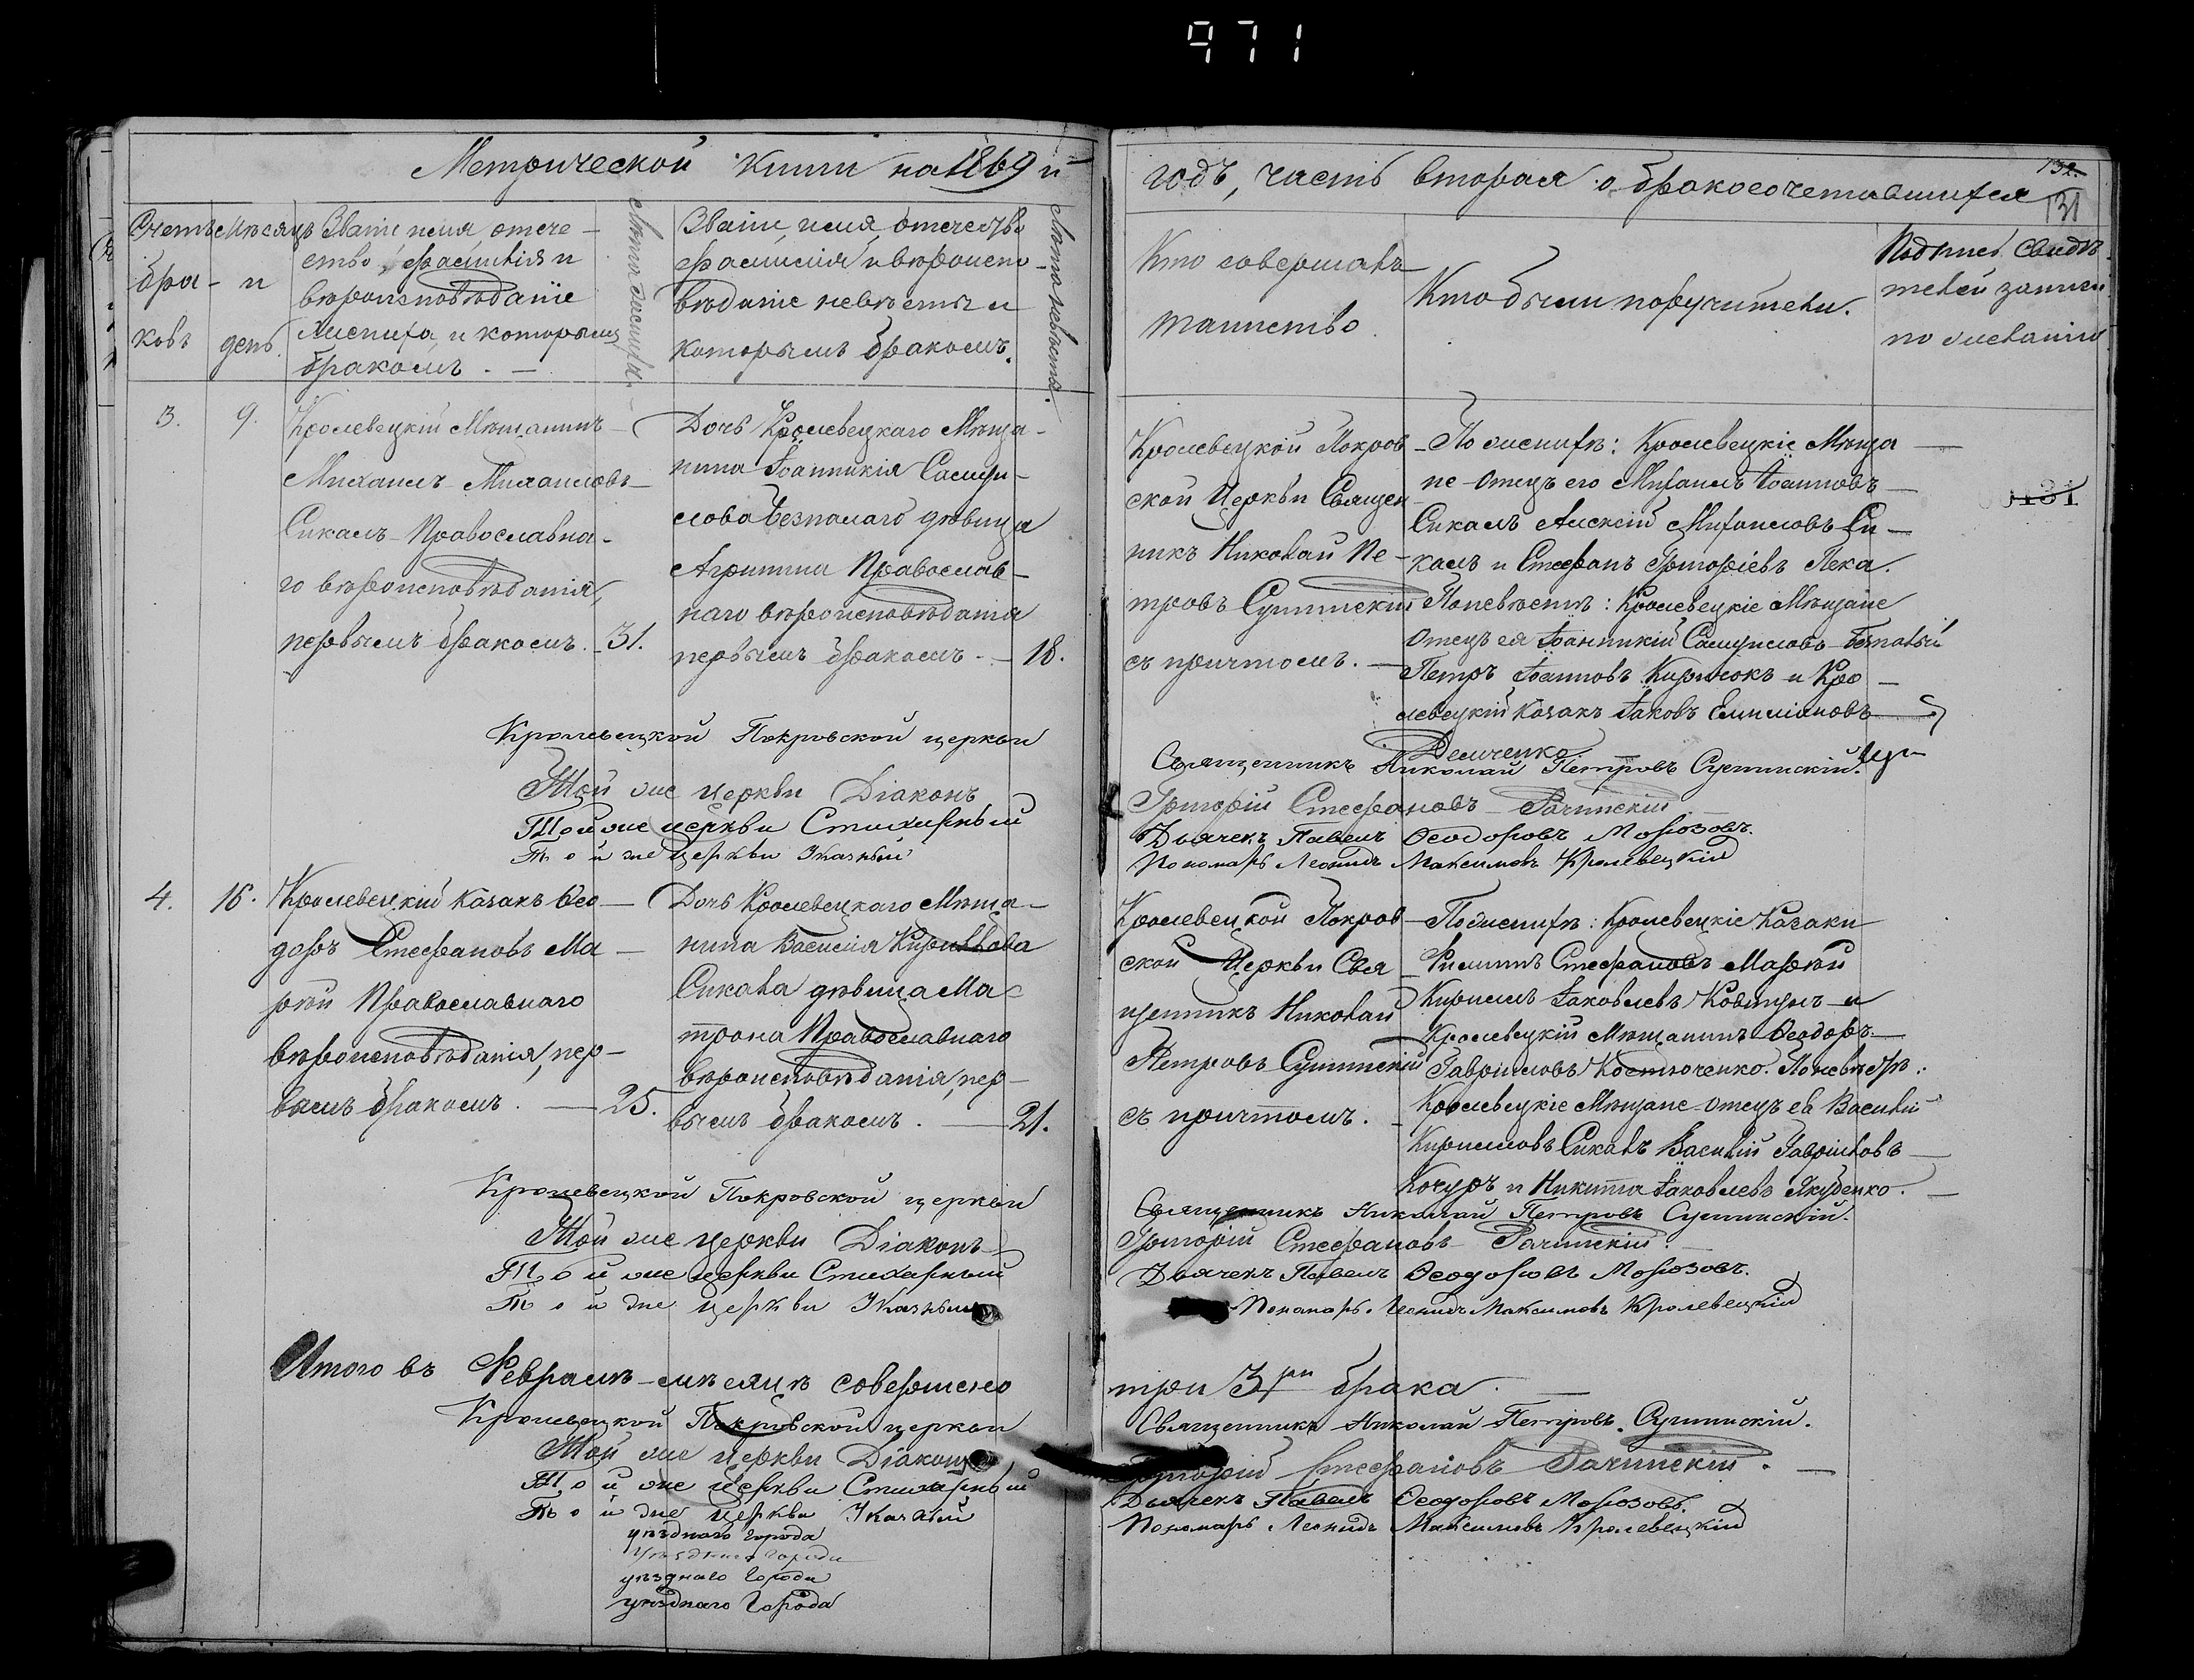 971
Метрической книги на 1869 й
годъ, часть вторая о бракосочетавшихся
132.
131
Счетъ
бра-
ковъ
Мѣсяцъ
и
день.
Званіе имя, отече-
ство, фамилія и
вѣроисповѣданіе
жениха, и которымъ
бракомъ. —
Лѣта жениха.
Званіе, имя, отечество
фамилія и вѣроиспо-
вѣданіе невѣсты и
которымъ бракомъ.
Лѣта невѣсты.
Кто совершалъ
таинство.
Кто были поручители.
Подпись свидѣ-
телей записи
по желанію
3.
9.
Кролевецкій Мѣщанинъ
Михаилъ Михаиловъ
Сикалъ Православна-
го вѣроисповѣданія,
первымъ бракомъ.
31.
Дочь Кролевецкаго Мѣща-
нина Іоанникія Самуи-
лова Безпалаго дѣвица
Агрипина Православ-
наго вѣроисповѣданія
первымъ бракомъ. —
18.
Кролевецкой Покров-
ской Церкви Священ-
никъ Николай Пе-
тровъ Сушинскій
съ причтомъ. —
По женихѣ: Кролевецкіе Мѣща
не отецъ его Михаилъ Іоанновъ
Сикалъ Алексій Михаиловъ Си-
калъ и Стефанъ Григоріевъ Лека.
По невѣстѣ: Кролевецкіе Мѣщане
отецъ ея Іоанникій Самуиловъ Безпалый
Петръ Іоанновъ Кирлюкъ и Кро-
левецкій Козакъ Іаковъ Емиліановъ
Демченко
131
Кролевецкой Покровской церкви
Священникъ Николай Петровъ Сушинскій.
Той же церкви Діаконъ
Григорій Стефановъ Рачинскій
Той же церкви Стихарный
Дьячекъ Павелъ Ѳеодоровъ Морозовъ.
Той же церкви Указный
Пономарь Леонидъ Максимовъ Кролевецкій
4.
16.
Кролевецкій Козакъ Ѳео-
доръ Стефановъ Ма-
рѣй Православнаго
вѣроисповѣданія, пер-
вымъ бракомъ.
25.
Дочь Кролевецкаго Мѣща-
нина Василія Кириллова
Сикала дѣвица Ма-
трона Православнаго
вѣроисповѣданія, пер-
вымъ бракомъ.
21.
Кролевецкой Покров-
ской Церкви Свя-
щенникъ Николай
Петровъ Сушинскій
съ причтомъ.
По женихѣ: Кролевецкіе Козаки
Филиппъ Стефановъ Марѣй
Кириллъ Іаковлевъ Ковтунъ и
Кролевецкій Мѣщанинъ Ѳеодоръ
Гавріиловъ Костюченко. По невѣстѣ:
Кролевецкіе Мѣщане отецъ ея Василій
Кирилловъ Сикалъ Василій Гавріиловъ
Кочуръ и Никита Іаковлевъ Якубенко.
Кролевецкой Покровской церкви
Священникъ Николай Петровъ Сушинскій.
Той же церкви Діаконъ
Григорій Стефановъ Рачинскій.
Той же церкви Стихарный
Дьячекъ Павелъ Ѳеодоровъ Морозовъ.
Той же церкви Указный
Пономарь Леонидъ Максимовъ Кролевецкій
Итого въ Февралѣ мѣсяцѣ совершено
три 3 ри брака.
Кролевецкой Покровской церкви
Священникъ Николай Петровъ Сушинскій.
Той же церкви Діаконъ
Григорій Стефановъ Рачинскій.
Той же церкви Стихарный
Дьячекъ Павелъ Ѳеодоровъ Морозовъ.
Той же церкви Указный
Пономарь Леонидъ Максимовъ Кролевецкій
уѣзднаго города
уѣзднаго города
уѣзднаго города
уѣзднаго города